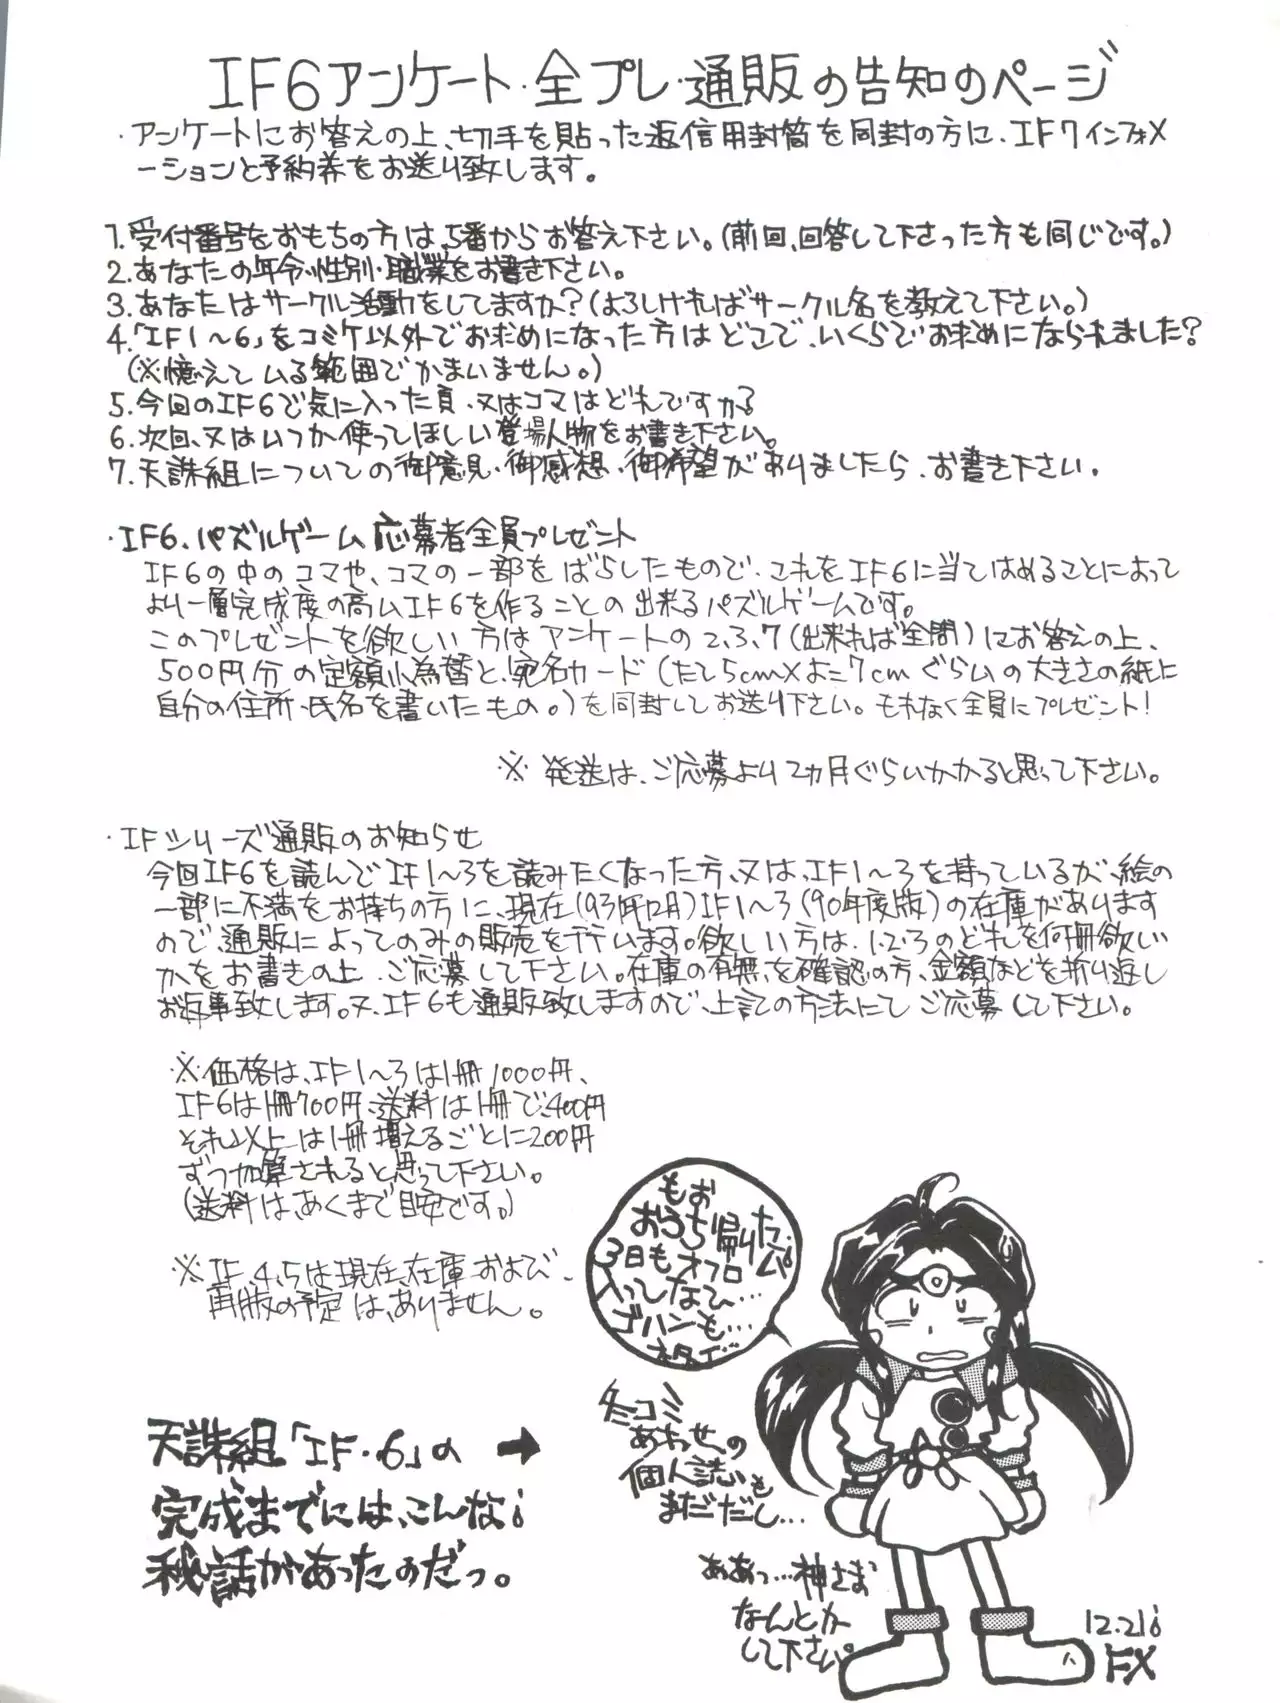 IF6アンケート・全プレ・通販の告知のページ
・アンケートにお答えの上、切手を貼った返信用封筒を同封の方に、IF7インフォメ
ーションと予約券をお送り致します。
1.受付番号をおもちの方は、5番からお答え下さい。(前回、回答して下さった方も同じです。)
2.あなたの年令・性別・職業をお書き下さい。
3.あなたはサークル活動をしてますか?(よろしければサークル名を教えて下さい。)
4.「IF1〜6」をコミケ以外でお求めになった方はどこで、いくらでお求めになられました?
(※憶えている範囲でかまいません。)
5.今回のIF6で気に入った頁、又はコマはどれですか?
6.次回、又はいつか使ってほしい登場人物をお書き下さい。
7.天誅組についての御意見・御感想・御希望がありましたら、お書き下さい。
・IF6、パズルゲーム応募者全員プレゼント
IF6の中のコマや、コマの一部をばらしたもので、これをIF6に当てはめることによって
より一層完成度の高いIF6を作ることの出来るパズルゲームです。
このプレゼントを欲しい方はアンケートの2、3、7(出来れば全問)にお答えの上、
500円分の定額小為替と、宛名カード(たて5cm×よこ7cmぐらいの大きさの紙に
自分の住所、氏名を書いたもの。)を同封してお送り下さい。もれなく全員にプレゼント!
※発送は、ご応募より2カ月ぐらいかかると思って下さい。
・IFシリーズ通販のお知らせ
今回IF6を読んでIF1〜3を読みたくなった方、又は、IF1〜3を持っているが、絵の
一部に不満をお持ちの方に、現在(93年12月)IF1〜3(90年度版)の在庫があります
ので、通販によってのみの販売を行います。欲しい方は、1・2・3のどれを何冊欲しい
かをお書きの上、ご応募して下さい。在庫の有無を確認の方、金額などを折り返し
お返事致します。又、IF6も通販致しますので、上記の方法にてご応募して下さい。
※価格は、IF1〜3は1冊1000円、
IF6は1冊700円、送料は1冊で、400円
それ以上は1冊増えるごとに200円
ずつ加算されると思って下さい。
(送料は、あくまで目安です。)
※IF、4、5は現在、在庫および、
再版の予定は、ありません。
もお
おうち帰りたい
3日もオフロ
入ってないし…
ゴハンも…
冬コミ
あわせの
個人誌も
まだだし…
ああっ…神さま
なんとか
して下さい。
天誅組「IF・6」の →
完成までには、こんな
秘話があったのだっ。
12.21
FX